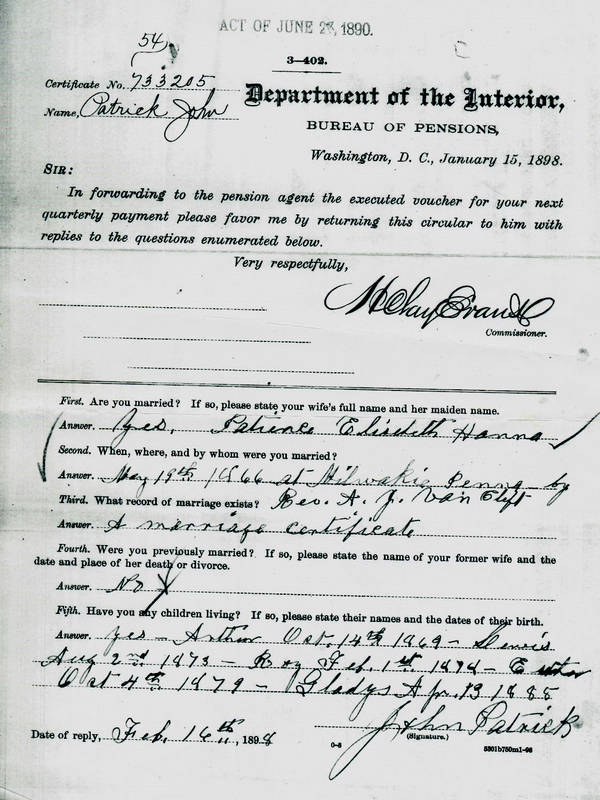 ACT OF JUNE 27, 1890.
54
3—402.
Certificate No. 733205
Name, Patrick John
Department of the Interior,
BUREAU OF PENSIONS,
Washington, D. C., January 15, 1898.
SIR:
In forwarding to the pension agent the executed voucher for your next
quarterly payment please favor me by returning this circular to him with
replies to the questions enumerated below.
Very respectfully,
H Clay Evans
Commissioner.
First. Are you married? If so, please state your wife's full name and her maiden name.
Answer. Yes, Patience Elizabeth Hanna
Second. When, where, and by whom were you married?
Answer. May 19th 1866 at Milwakie Penna by
Third. What record of marriage exists? Rev. A. J. Van
Answer. A marriage certificate
Fourth. Were you previously married? If so, please state the name of your former wife and the
date and place of her death or divorce.
Answer. No
Fifth. Have you any children living? If so, please state their names and the dates of their birth.
Answer. Yes – Arthur Oct. 14th 1869 –
Aug 2nd 1873 – Roy Feb. 1st 1878 –
Oct 4th 1879 – Gladys Apr. 13 1885
John Patrick
(Signature.)
Date of reply, Feb. 16th, 1898
0-8
5301b750m1-98